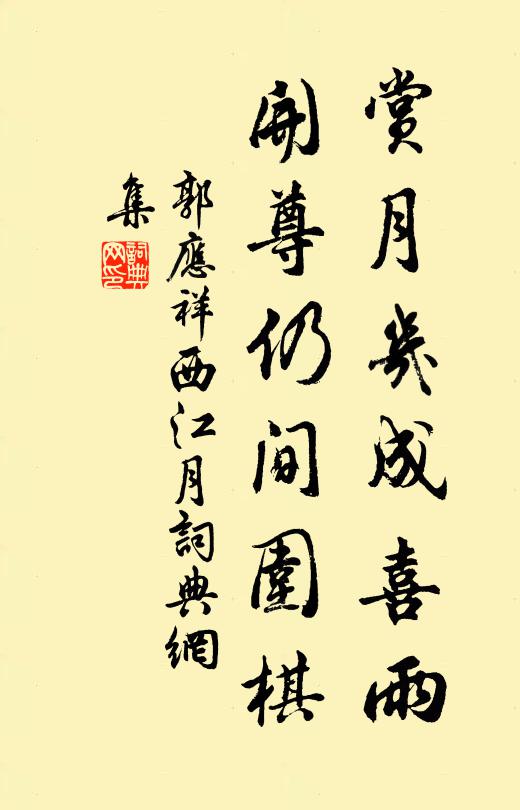 賞月幾成喜雨
開尊仍間圍棋
郭應祥西江月詞典網
集
詞典網印